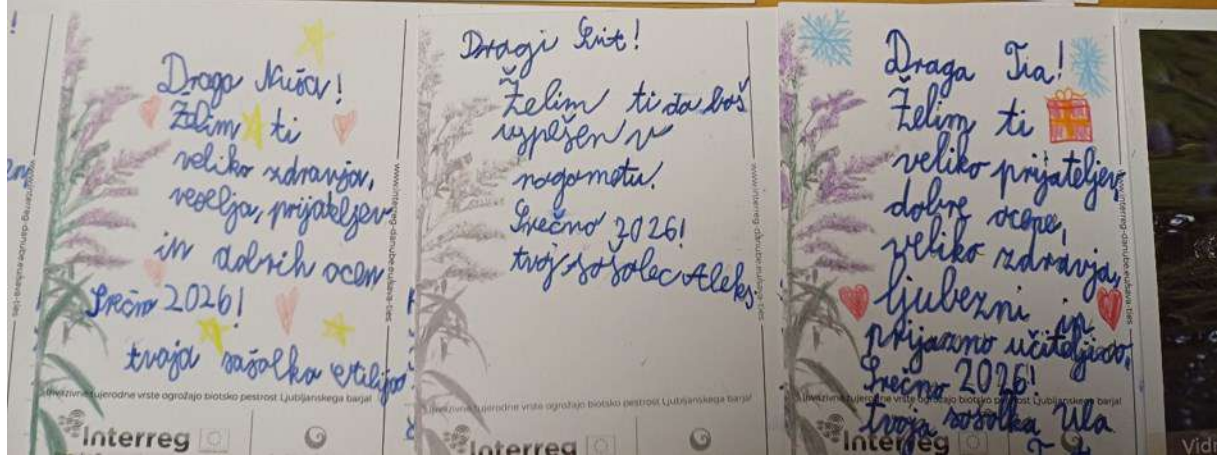 Draga Nuša!
Želim ti
veliko zdravja,
veselja, prijateljev
in dobrih ocen
Srečno 2026!
tvoja sošolka
Invazivne tujerodne vrste ogrožajo biotsko pestrost Ljubljanskega barja!
Interreg
www.interreg-danube.eu/sava-ties
Dragi
Želim ti da boš
uspešen v
nogometu.
Srečno 2026!
tvoj sošolec Aleks.
Invazivne tujerodne vrste ogrožajo biotsko pestrost Ljubljanskega barja!
Interreg
www.interreg-danube.eu/sava-ties
Draga Tia!
Želim ti
veliko prijateljev,
dobre ocene,
veliko zdravja,
ljubezni in
prijazno učiteljico.
Srečno 2026!
Invazivne tujerodne vrste ogrožajo biotsko pestrost Ljubljanskega barja!
tvoja sošolka Ula
Interreg
www.interreg-danube.eu/sava-ties